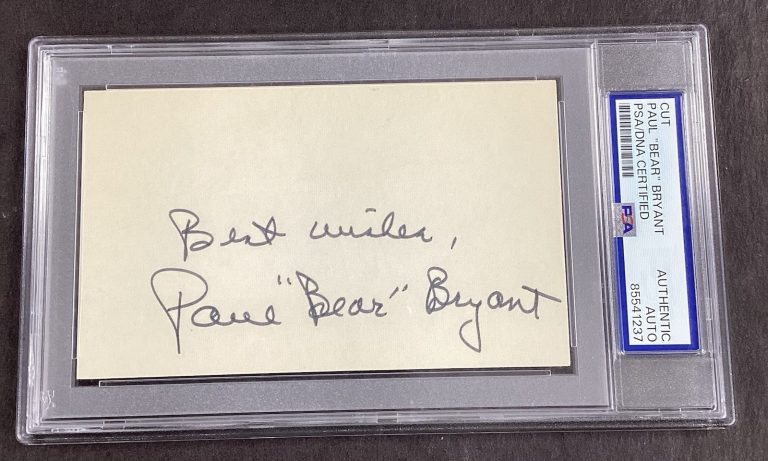 Best wishes,
Paul "Bear" Bryant
CUT
PAUL "BEAR" BRYANT
PSA/DNA CERTIFIED
PSA
AUTHENTIC
AUTO
85541237